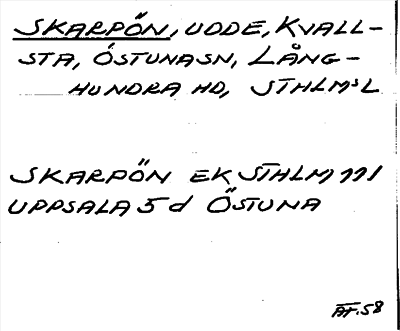 SKARPÖN, UDDE, KVALL-
STA, ÖSTUNASN, LÅNG-
HUNDRA HD, STHLMS L
SKARPÖN EK STHLM 111
UPPSALA 5 d ÖSTUNA
ÄF. 58